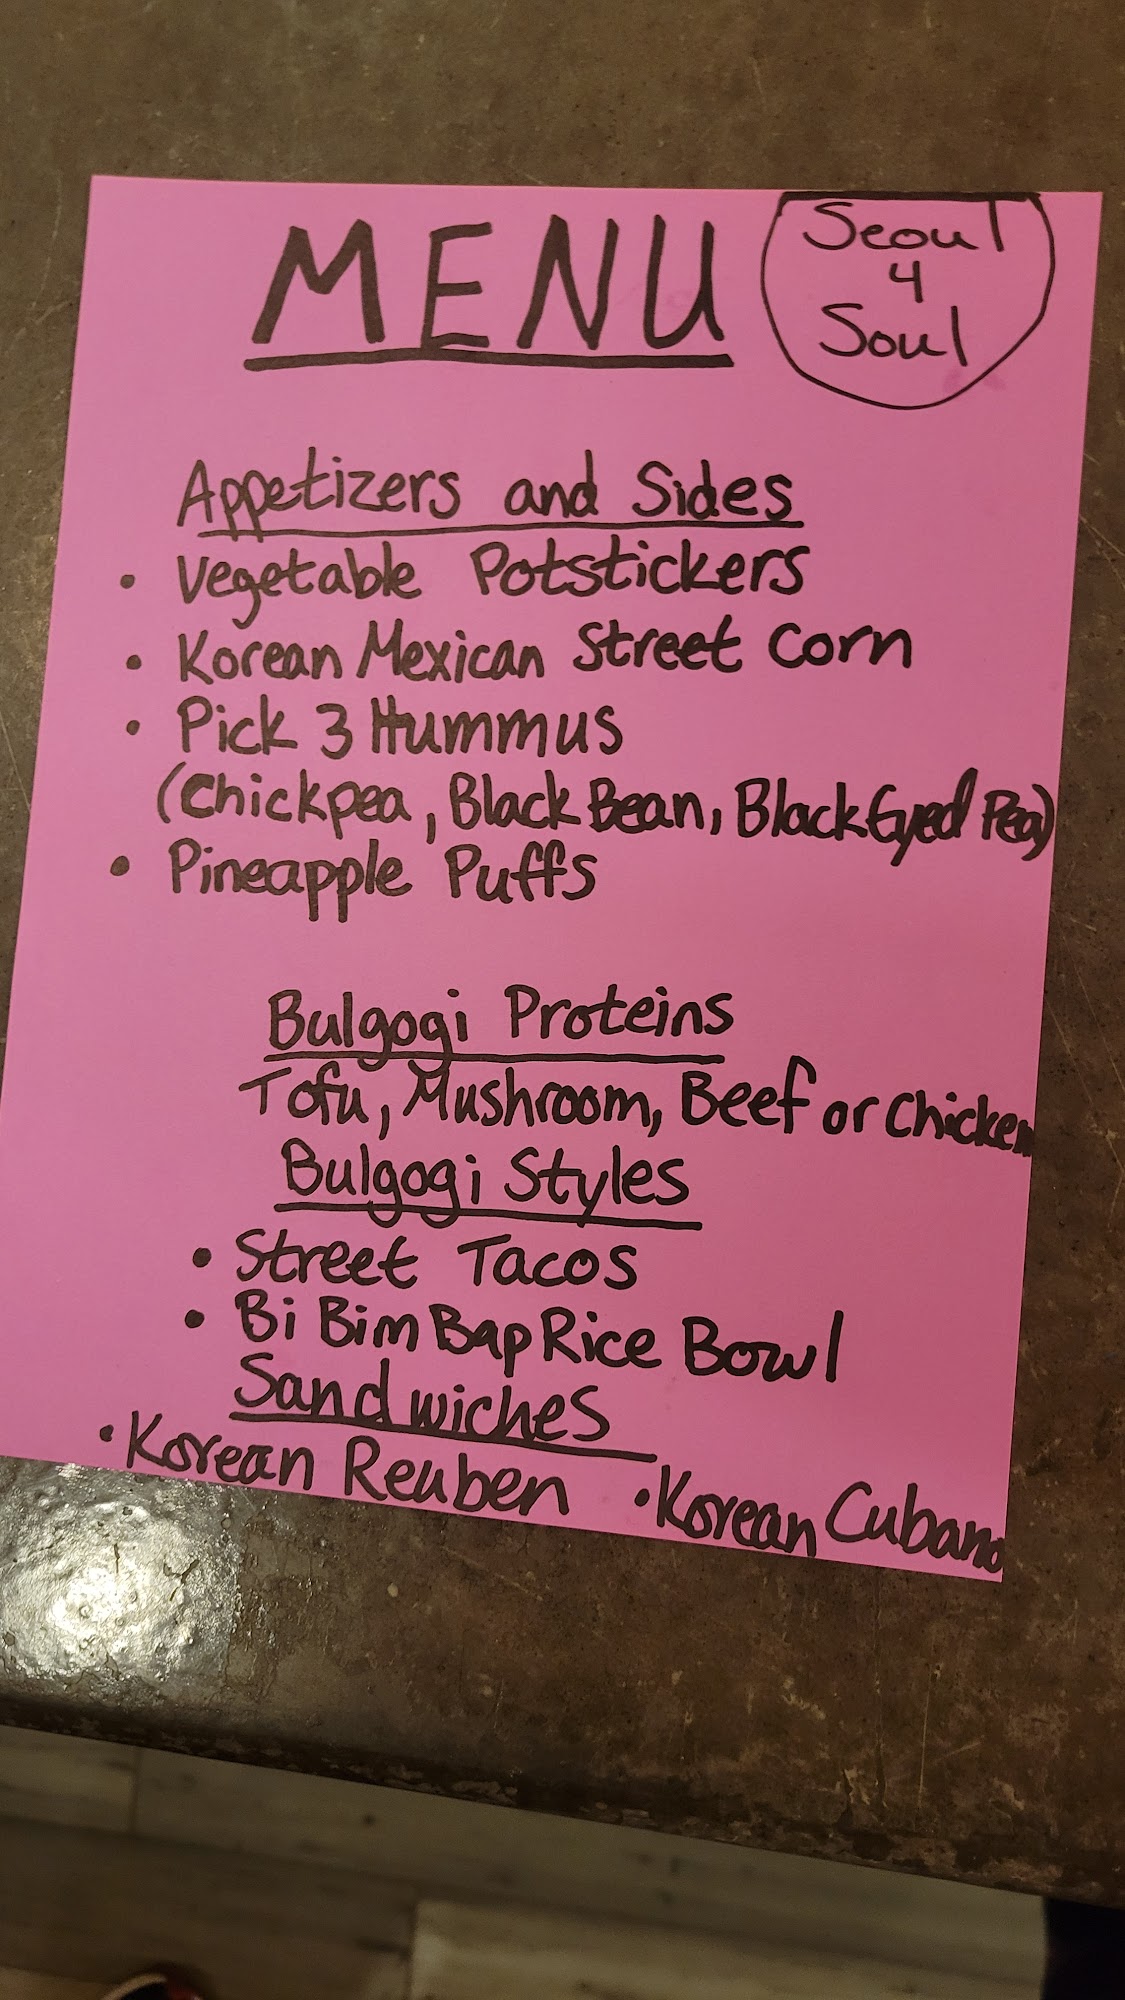 MENU
Seoul
4
Soul
Appetizers and Sides
• Vegetable Potstickers
• Korean Mexican Street Corn
• Pick 3 Hummus
(Chickpea, Black Bean, Black Eyed Pea)
• Pineapple Puffs
Bulgogi Proteins
Tofu, Mushroom, Beef or Chicken
Bulgogi Styles
• Street Tacos
• Bi Bim Bap Rice Bowl
Sandwiches
• Korean Reuben • Korean Cubano